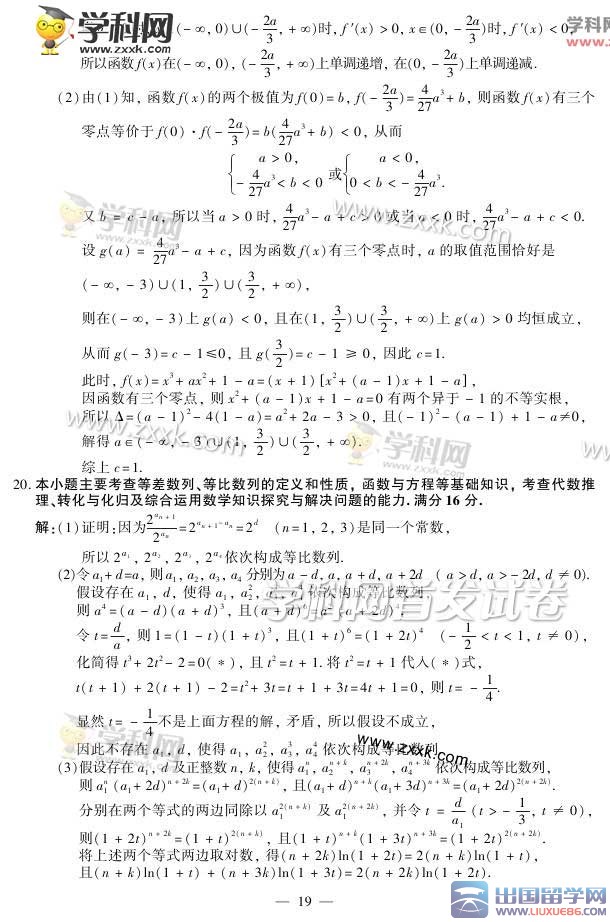 学科网
www.zxxk.com
(-∞, 0)∪(-2a/3, +∞)时, f′(x) > 0, x∈(0, -2a/3)时, f′(x) < 0,
所以函数f(x)在(-∞, 0), (-2a/3, +∞)上单调递增, 在(0, -2a/3)上单调递减.
(2)由(1)知, 函数f(x)的两个极值为f(0)= b, f(-2a/3)= 4/27 a³+ b, 则函数f(x)有三个
零点等价于 f(0)·f(-2a/3)= b(4/27 a³+ b) < 0, 从而
{a > 0, -4/27 a³< b < 0 或 {a < 0, 0 < b < -4/27 a³.
又 b = c - a, 所以当 a > 0 时, 4/27 a³- a + c > 0 或当 a < 0 时, 4/27 a³- a + c < 0.
设 g(a) = 4/27 a³- a + c, 因为函数 f(x)有三个零点时, a 的取值范围恰好是
(-∞, -3)∪(1, 3/2)∪(3/2, +∞),
则在(-∞, -3)上 g(a) < 0, 且在(1, 3/2)∪(3/2, +∞)上 g(a) > 0 均恒成立,
从而 g(-3)= c - 1≤0, 且 g(3/2)= c - 1 ≥ 0, 因此 c = 1.
此时, f(x)= x³+ ax²+ 1 - a =(x + 1)[x²+ (a - 1)x + 1 - a],
因函数有三个零点, 则 x²+ (a - 1)x + 1 - a = 0 有两个异于 - 1 的不等实根,
所以 Δ=(a - 1)²- 4(1 - a)= a²+ 2a - 3 > 0, 且(-1)²- (a - 1) + 1 - a≠0,
解得 a∈(-∞, -3)∪(1, 3/2)∪(3/2, +∞).
综上 c = 1.
20. 本小题主要考查等差数列、等比数列的定义和性质, 函数与方程等基础知识, 考查代数推
理、转化与化归及综合运用数学知识探究与解决问题的能力. 满分 16 分.
解: (1)证明: 因为 2^(aₙ₊₁)/2^(aₙ) = 2^(aₙ₊₁-aₙ) = 2^d (n = 1, 2, 3)是同一个常数,
所以 2^(a₁), 2^(a₂), 2^(a₃), 2^(a₄)依次构成等比数列.
(2)令 a₁+ d = a, 则 a₁, a₂, a₃, a₄ 分别为 a - d, a, a + d, a + 2d (a > d, a > - 2d, d ≠ 0).
假设存在 a₁, d, 使得 a₁, a₂², a₃³, a₄⁴ 依次构成等比数列,
则 a⁴=(a - d)(a + d)³, 且(a + d)⁶= a²(a + 2d)⁴,
令 t = d/a, 则 1 =(1 - t)(1 + t)³, 且(1 + t)⁶=(1 + 2t)⁴ (-1/2 < t < 1, t ≠ 0),
化简得 t³+ 2t²- 2 = 0(*), 且 t²= t + 1. 将 t²= t + 1 代入(*)式,
t(t + 1) + 2(t + 1) - 2 = t²+ 3t = t + 1 + 3t = 4t + 1 = 0, 则 t = -1/4.
显然 t = -1/4 不是上面方程的解, 矛盾, 所以假设不成立,
因此不存在 a₁, d, 使得 a₁, a₂², a₃³, a₄⁴ 依次构成等比数列.
(3)假设存在 a₁, d 及正整数 n, k, 使得 a₁ⁿ, a₂ⁿ⁺ᵏ, a₃ⁿ⁺²ᵏ, a₄ⁿ⁺³ᵏ 依次构成等比数列,
则 a₁ⁿ(a₁+ 2d)ⁿ⁺²ᵏ=(a₁+ d)²⁽ⁿ⁺ᵏ⁾, 且(a₁+ d)ⁿ⁺ᵏ(a₁+ 3d)ⁿ⁺³ᵏ=(a₁+ 2d)²⁽ⁿ⁺²ᵏ⁾.
分别在两个等式的两边同除以 a₁²⁽ⁿ⁺ᵏ⁾ 及 a₁²⁽ⁿ⁺²ᵏ⁾, 并令 t = d/a₁ (t > -1/3, t ≠ 0),
则(1 + 2t)ⁿ⁺²ᵏ=(1 + t)²⁽ⁿ⁺ᵏ⁾, 且(1 + t)ⁿ⁺ᵏ(1 + 3t)ⁿ⁺³ᵏ=(1 + 2t)²⁽ⁿ⁺²ᵏ⁾.
将上述两个等式两边取对数, 得(n + 2k)ln(1 + 2t)= 2(n + k)ln(1 + t),
且(n + k)ln(1 + t) + (n + 3k)ln(1 + 3t)= 2(n + 2k)ln(1 + 2t).
— 19 —
学科网首发试卷
出国留学网
www.liuxue86.com